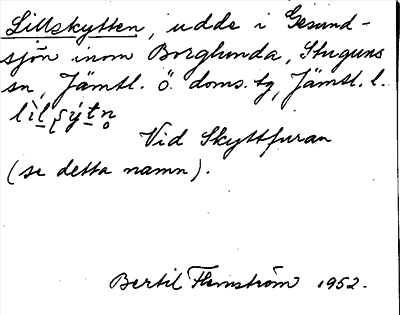 Lillskytten, udde i Gesund-
sjön inom Borglunda, Stuguns
sn, Jämtl. ö. doms. tg, Jämtl. l.
Vid Skyttfuran
(se detta namn).
Bertil Flemström 1952.